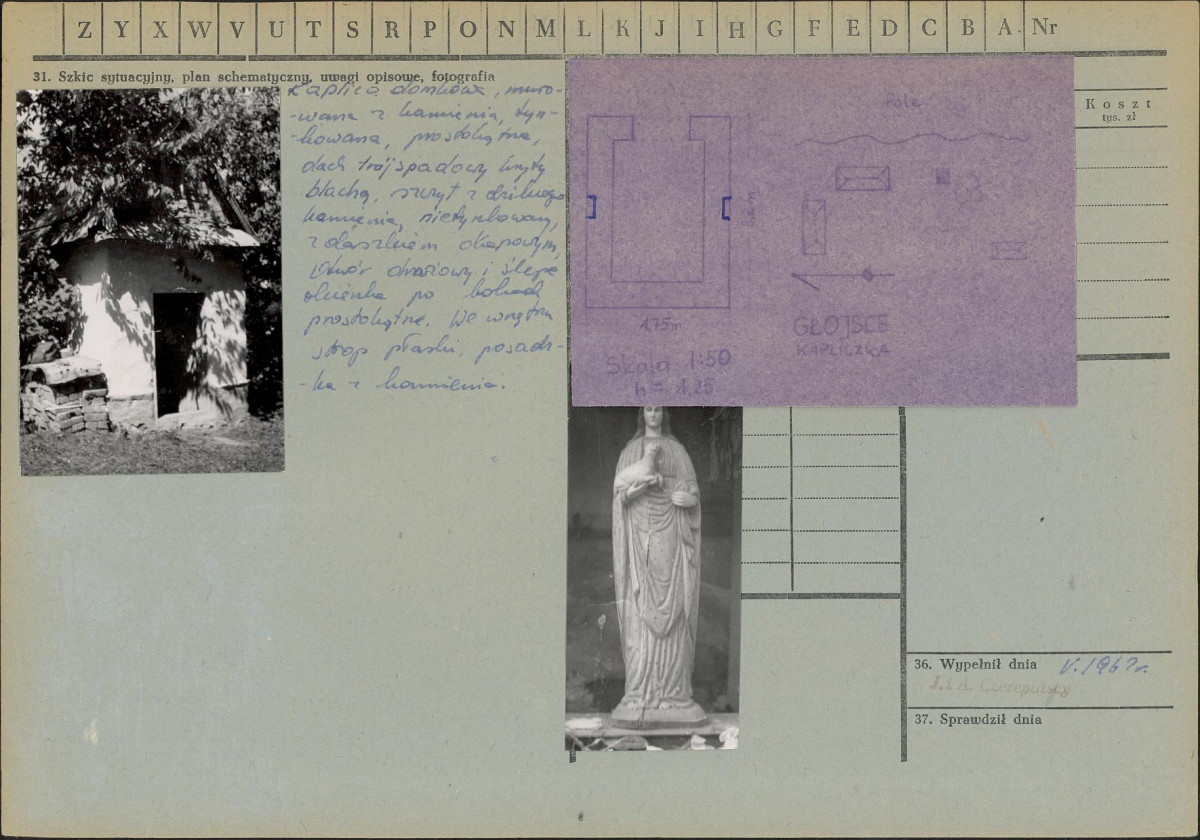 Z Y X W V U T S R P O N M L K J I H G F E D C B A Nr
31. Szkic sytuacyjny, plan schematyczny, uwagi opisowe, fotografia
Kaplica domkowa, muro-
-wana z kamienia, tyn-
-kowana, prostokątna,
dach trójspadowy kryty
blachą, szczyt z dzikiego
kamienia, nietynkowany,
z daszkiem okapowym,
Otwór drzwiowy i ślepe
okienka po bokach
prostokątne. We wnętrzu
strop płaski, posadz-
-ka z kamienia.
Pole
1,75m
Skala 1:50
h = 1,25
GŁOJSCE
KAPLICZKA
Koszt
tys. zł
36. Wypełnił dnia V.1962r.
J. i A. Czerepińscy
37. Sprawdził dnia